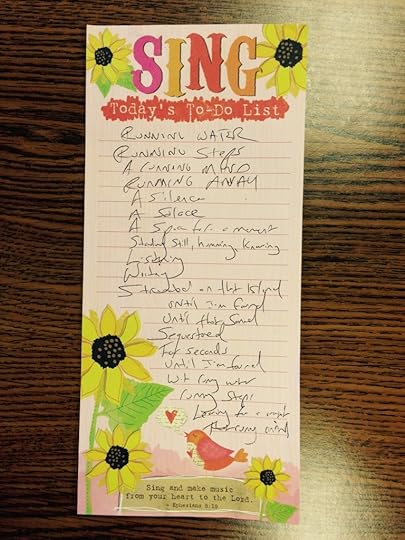 SING
Today's To-Do List
RUNNING WATER
RUNNING Steps
A RUNNING MIND
RUNNING AWAY
A Silence
A Solace
A Space for a moment
Standing Still, humming, knowing
Listening
Waiting
Stranded on that Island
until I'm found
Until that Sound
Sequestered
For seconds
Until I'm found
With running water
running steps
for a
running mind
Sing and make music
from your heart to the Lord.
- Ephesians 5:19